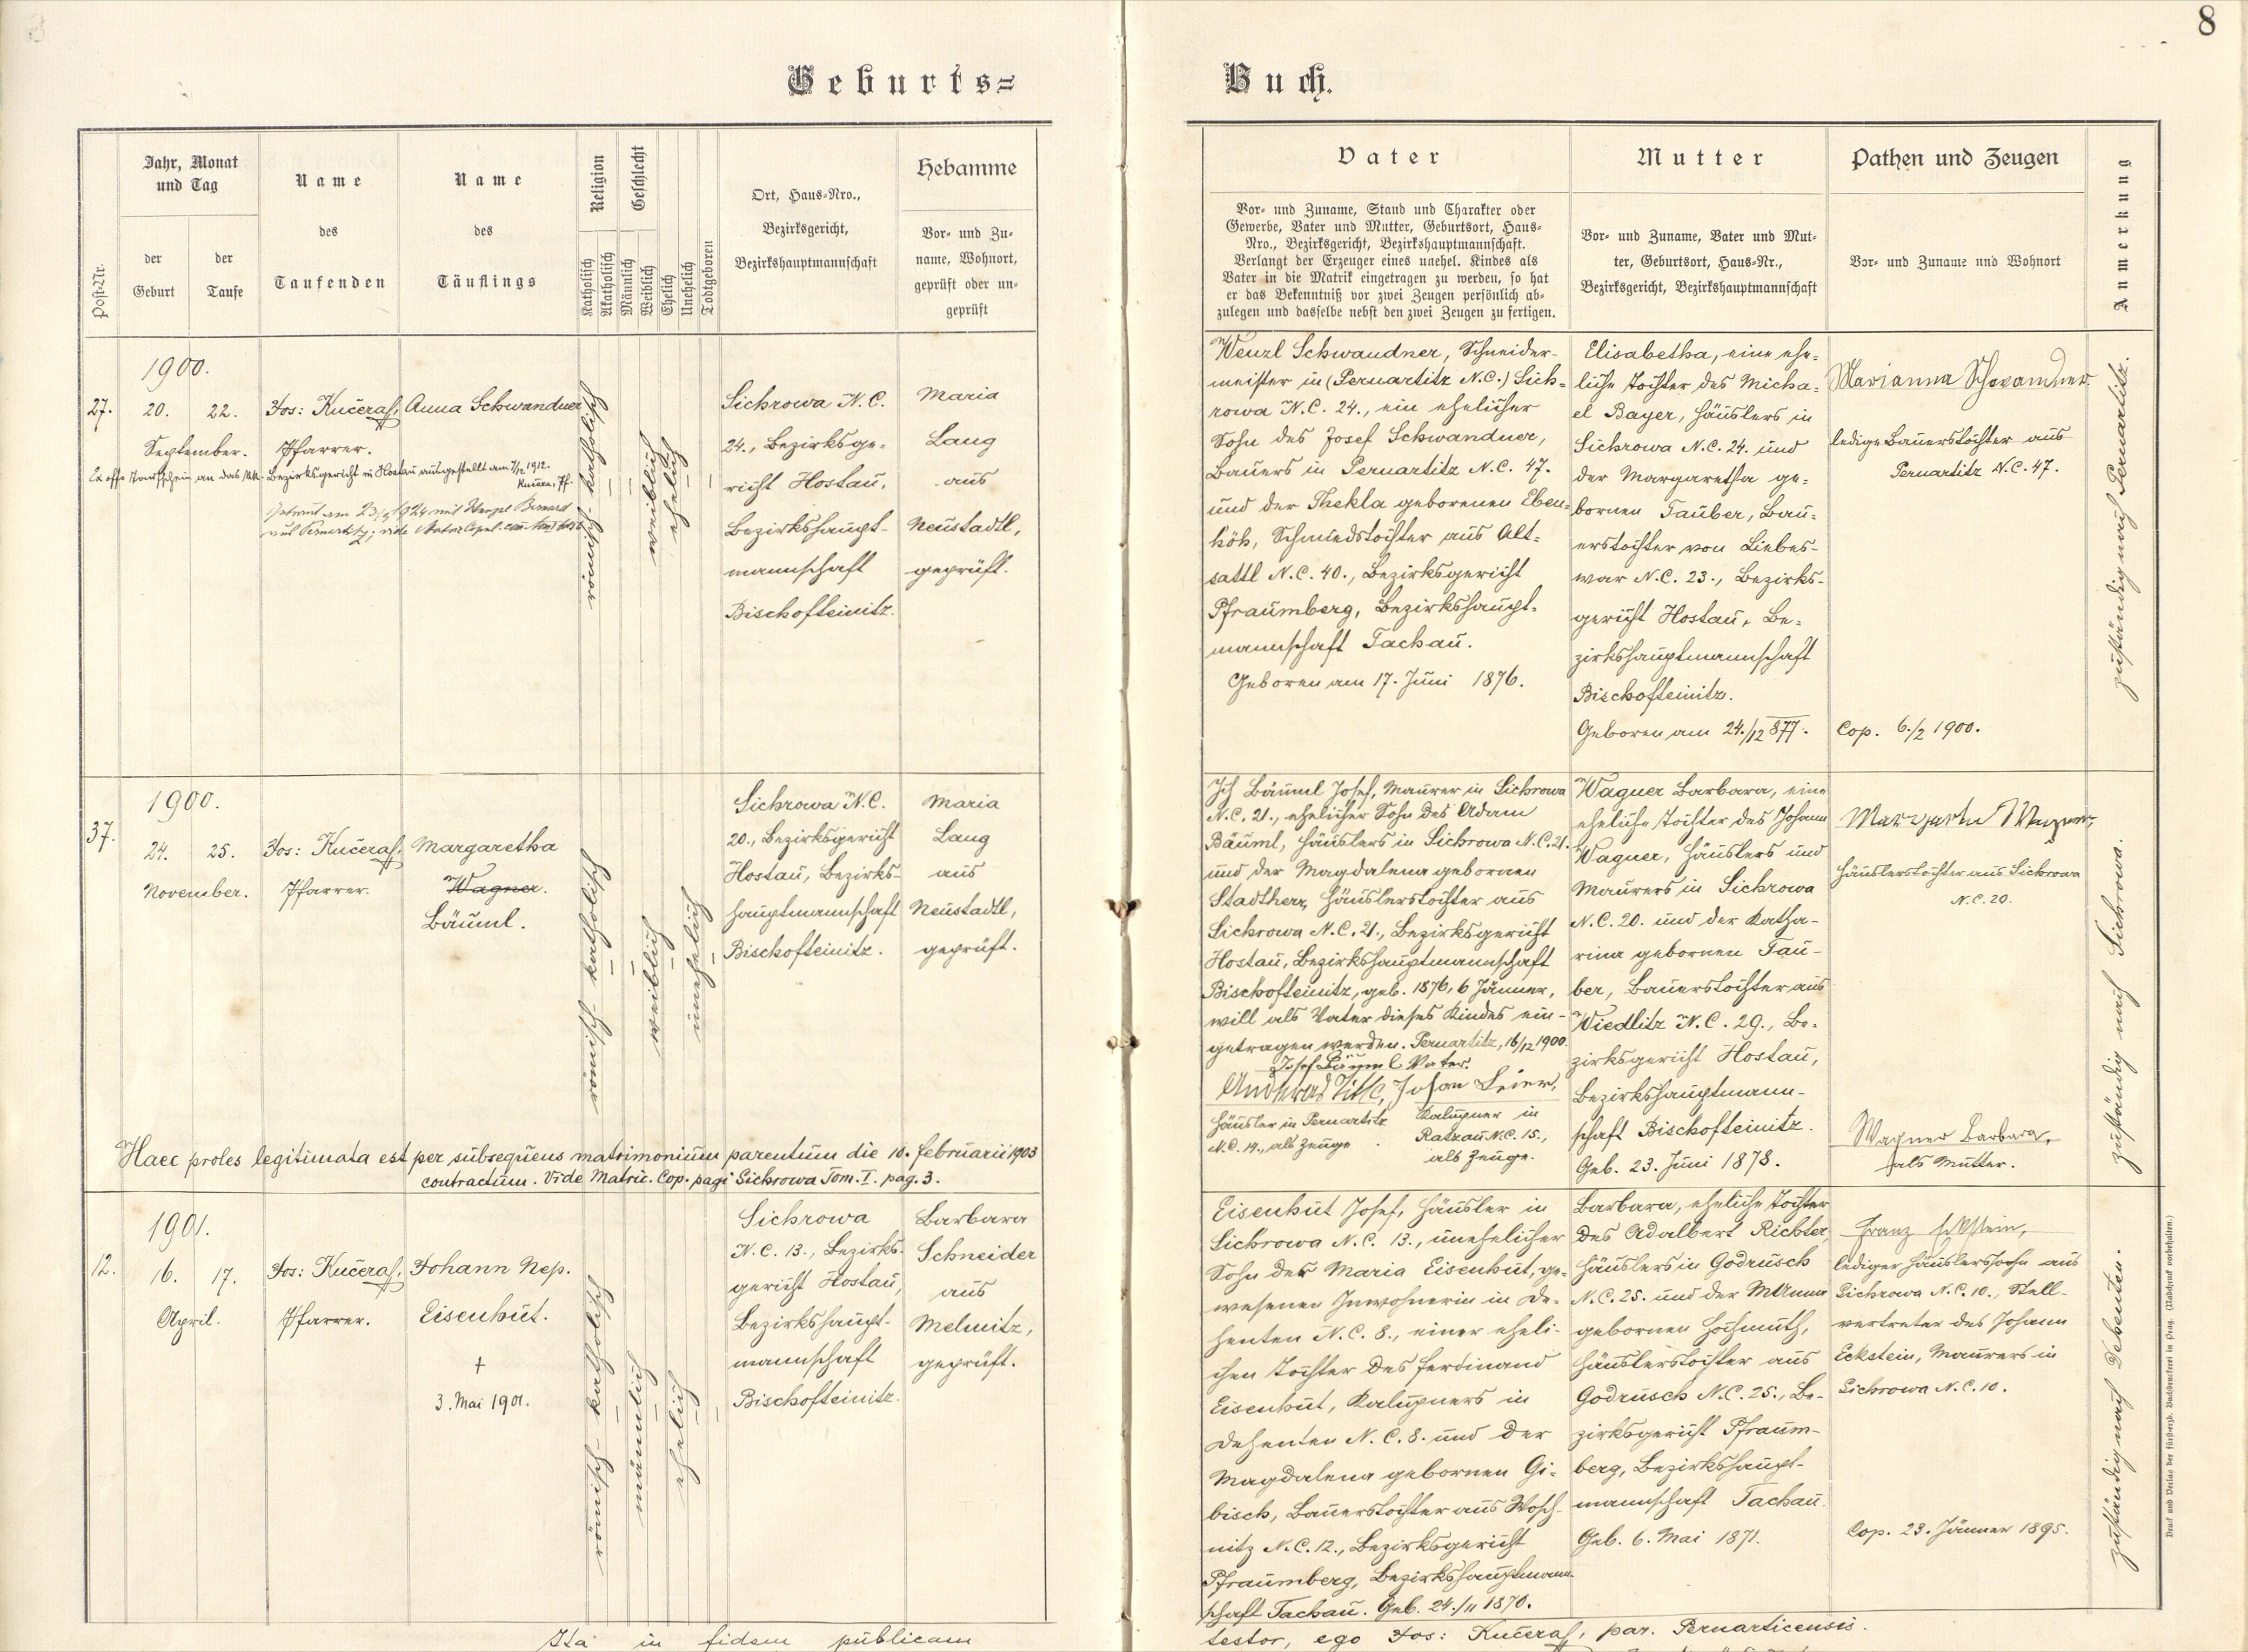 8
Geburts=
Buch.
Post-Nr.
Jahr, Monat
und Tag
der
Geburt
der
Taufe
Name
des
Taufenden
Name
des
Täuflings
Religion
Katholisch
Akatholisch
Geschlecht
Männlich
Weiblich
Ehelich
Unehelich
Todtgeboren
Ort, Haus-Nro.,
Bezirksgericht,
Bezirkshauptmannschaft
Hebamme
Vor- und Zu-
name, Wohnort,
geprüft oder un-
geprüft
Vater
Vor- und Zuname, Stand und Charakter oder
Gewerbe, Vater und Mutter, Geburtsort, Haus-
Nro., Bezirksgericht, Bezirkshauptmannschaft.
Verlangt der Erzeuger eines unehel. Kindes als
Vater in die Matrik eingetragen zu werden, so hat
er das Bekenntniß vor zwei Zeugen persönlich ab-
zulegen und dasselbe nebst den zwei Zeugen zu fertigen.
Mutter
Vor- und Zuname, Vater und Mut-
ter, Geburtsort, Haus-Nr.,
Bezirksgericht, Bezirkshauptmannschaft
Pathen und Zeugen
Vor- und Zuname und Wohnort
Anmerkung
27.
1900.
20. 22.
September.
Jos: Kučera,
Pfarrer.
Anna Schwandner
Ex offo Taufschein an das k.k. Bezirksgericht in Hostau ausgestellt am 7/12 1912.
Kučera, Pf.
Getraut am 23/9 1924 mit Wenzel
römisch-katholisch
weiblich
ehelich
Sichrowa N.C.
24., Bezirksge-
richt Hostau,
Bezirkshaupt-
mannschaft
Bischofteinitz.
Maria
Lang
aus
Neustadtl,
geprüft.
Wenzl Schwandner, Schneider-
meister in (Pernartitz N.C.) Sich-
rowa N.C. 24., ein ehelicher
Sohn des Josef Schwandner,
Bauers in Pernartitz N.C. 47.
und der Thekla geborenen Eben-
höh, Schmiedstochter aus Alt-
sattl N.C. 40., Bezirksgericht
Pfraumberg, Bezirkshaupt-
mannschaft Tachau.
Geboren am 17. Juni 1876.
Elisabetha, eine ehe-
liche Tochter des Micha-
el Bayer, Häuslers in
Sichrowa N.C. 24. und
der Margaretha ge-
bornen Tauber, Bau-
erstochter von Liebes-
war N.C. 23., Bezirks-
gericht Hostau, Be-
zirkshauptmannschaft
Bischofteinitz.
Geboren am 24./12 877.
Marianna Schwandner
ledige Bauerstochter aus
Pernartitz N.C. 47.
Cop. 6./2 1900.
zuständig nach Pernartitz.
37.
1900.
24. 25.
November.
Jos: Kučera,
Pfarrer.
Margaretha
Wagner.
Bäuml.
römisch-katholisch
weiblich
unehelich
Sichrowa N.C.
20., Bezirksgericht
Hostau, Bezirks-
hauptmannschaft
Bischofteinitz.
Maria
Lang
aus
Neustadtl,
geprüft.
Ich Bäuml Josef, Maurer in Sichrowa
N.C. 21., ehelicher Sohn des Adam
Bäuml, Häuslers in Sichrowa N.C. 21.
und der Magdalena gebornen
Stadtherr, Häuslerstochter aus
Sichrowa N.C. 21., Bezirksgericht
Hostau, Bezirkshauptmannschaft
Bischofteinitz, geb. 1876, 6 Jänner,
will als Vater dieses Kindes ein-
getragen werden. Pernartitz, 16/12 1900.
Josef Bäuml Vater.
Johan Leier,
Häusler in Pernartitz
N.C. 14., als Zeuge.
Kalupner in
Ratzau N.C. 15.,
als Zeuge.
Wagner Barbara, eine
eheliche Tochter des Johann
Wagner, Häuslers und
Maurers in Sichrowa
N.C. 20. und der Katha-
rina gebornen Tau-
ber, Bauerstochter aus
Wiedlitz N.C. 29., Be-
zirksgericht Hostau,
Bezirkshauptmann-
schaft Bischofteinitz.
Geb. 23. Juni 1878.
Margareta Wagner,
Häuslerstochter aus Sichrowa
N.C. 20.
Wagner Barbara,
als Mutter.
zuständig nach Sichrowa.
Haec proles legitimata est per subsequens matrimonium parentum die 10. februarii 1903
contractum. Vide Matric. Cop. pagi Sichrowa Tom. I. pag. 3.
12.
1901.
16. 17.
April.
Jos: Kučera,
Pfarrer.
Johann Nep.
Eisenhut.
+
3. Mai 1901.
römisch-katholisch
männlich
ehelich
Sichrowa
N.C. 13., Bezirks-
gericht Hostau,
Bezirkshaupt-
mannschaft
Bischofteinitz.
Barbara
Schneider
aus
Melnitz,
geprüft.
Eisenhut Josef, Häusler in
Sichrowa N.C. 13., unehelicher
Sohn der Maria Eisenhut, ge-
wesenen Inwohnerin in De-
henten N.C. 8., einer eheli-
chen Tochter des Ferdinand
Eisenhut, Kalupners in
Dehenten N.C. 8. und der
Magdalena gebornen Gi-
bisch, Bauerstochter aus Wosch-
nitz N.C. 12., Bezirksgericht
Pfraumberg, Bezirkshauptmann-
schaft Tachau. Geb. 24./11 1870.
Barbara, eheliche Tochter
des Adalbert Richter,
Häuslers in Godrusch
N.C. 25. und der M Anna
gebornen Hochmuth,
Häuslerstochter aus
Godrusch N.C. 25., Be-
zirksgericht Pfraum-
berg, Bezirkshaupt-
mannschaft Tachau.
Geb. 6. Mai 1871.
Franz
lediger Häuslerssohn aus
Sichrowa N.C. 10., Stell-
vertreter des Johann
Eckstein, Maurers in
Sichrowa N.C. 10.
Cop. 23. Jänner 1895.
zuständig nach Dehenten.
Ita in fidem publicam
testor, ego Jos: Kučera, par. Pernarticensis.
Druck und Verlag der fürsterzb. Buchdruckerei in Prag. (Nachdruck vorbehalten.)